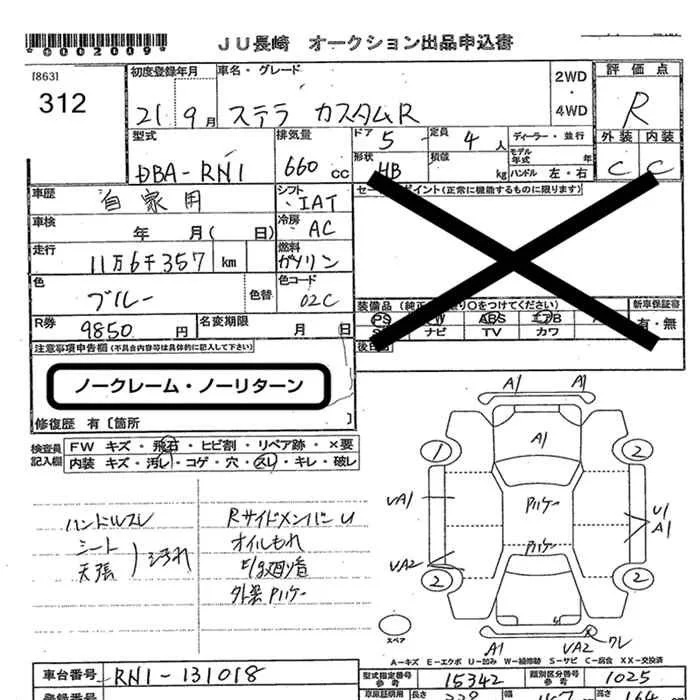 *0002009*
JU長崎 オークション出品申込書
[863]
312
初度登録年月
21年9月
車名・グレード
ステラ カスタムR
2WD
・
4WD
評価点
R
外装 内装
C C
型式
DBA-RN1
排気量
660 cc
ドア 5
定員 4 人
ディーラー・並行
形状 HB
積載 kg
モデル年式 年
ハンドル 左・右
車歴
自家用
シフト
IAT
車検
年 月( 日)
冷房
AC
走行
11万6千357 km
燃料
ガソリン
色
ブルー
色替
色コード
02C
R券
9850 円
名変期限
月 日
セールスポイント(正常に機能するものに限ります)
新車保証書
有・無
PS PW ABS エアB
ナビ TV カワ
後日品
注意事項申告欄(不具合内容等は具体的に記入して下さい)
ノークレーム・ノーリターン
修復歴 有〔箇所 〕
検査員記入欄
FW キズ・飛石・ヒビ割・リペア跡・×要
内装 キズ・汚レ・コゲ・穴・スレ・キレ・破レ
ハンドルスレ
シート
天張
汚れ
Rサイドメンバー U
オイルもれ
E/g廻り音
外装Pハケー
A1 A1
A1
1 2
UA1
Pハケー
U1
A1
Pハケー
UA2
2 2
スペア
A1
UA2 ワレ
A－キズ E－エクボ U－凹み W－補修跡 S－サビ C－腐食 XX－交換済
車台番号
RN1-131018
型式指定番号
参考
15342
類別区分番号
参考
1025
登録番号
長さ
高さ
164